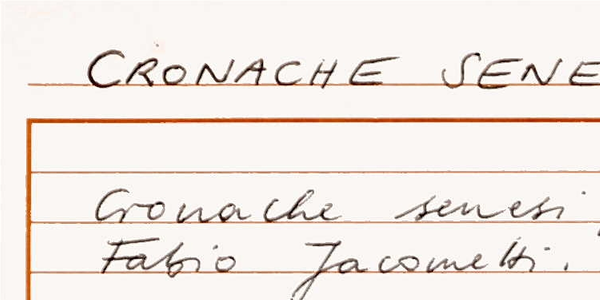 CRONACHE SENE
Cronache senesi
Fabio Jacometti.